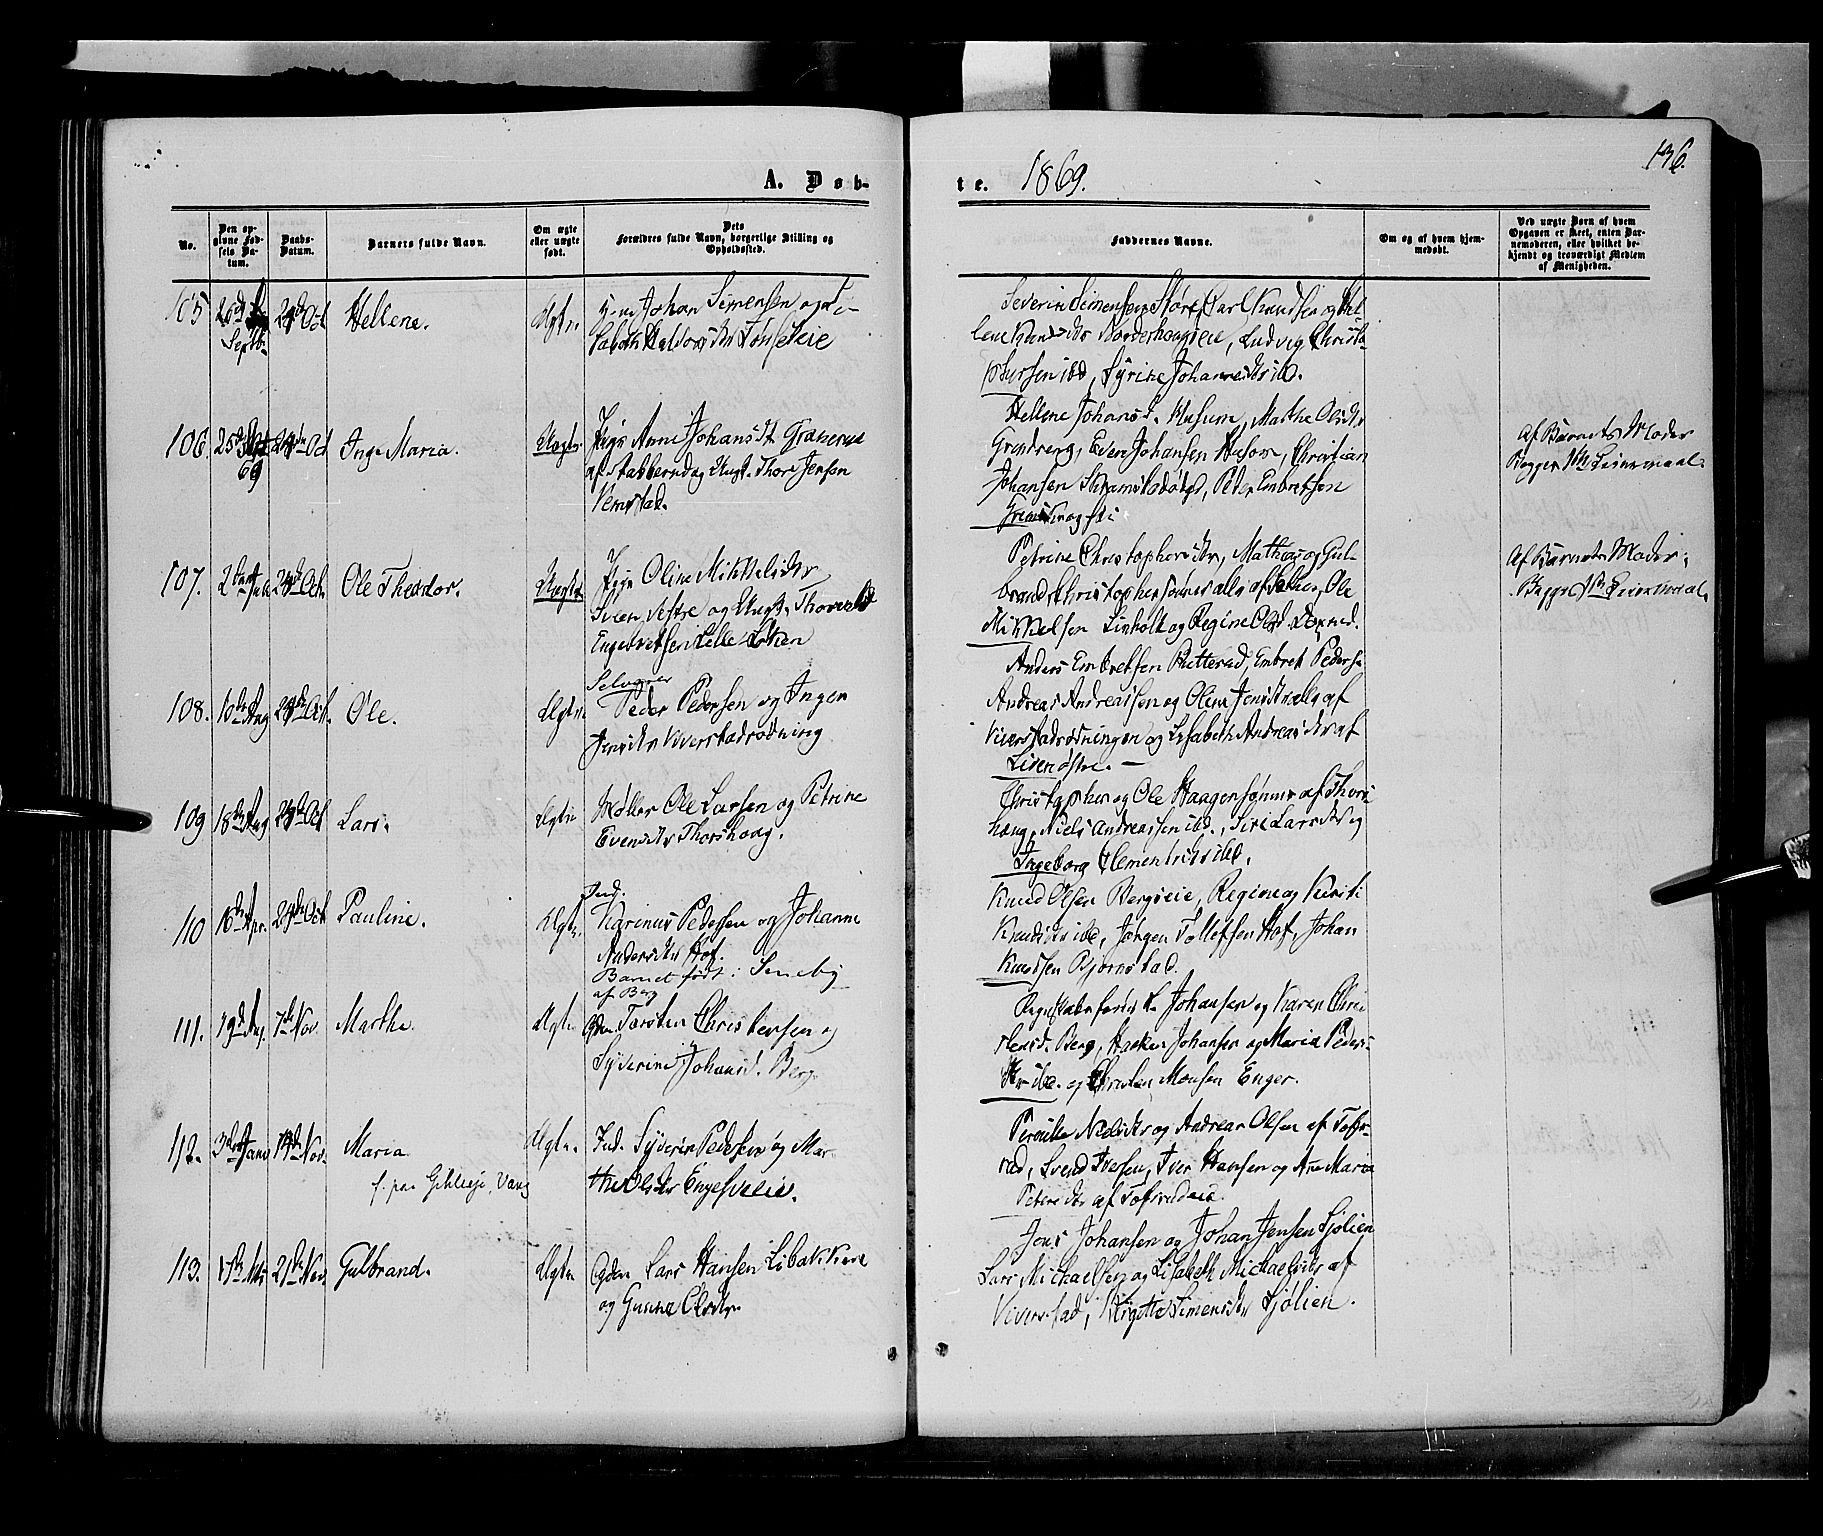 136.
A. Døb-
te. 1869.
No.
Den op-
givne Fød-
sels Da-
tum.
Daabs-
Datum.
Barnets fulde Navn.
Om ægte
eller uægte
født.
Dets
Forældres fulde Navn, borgerlige Stilling og
Opholdssted.
Faddernes Navne.
Om og af hvem hjem-
medøbt.
Ved uægte Børn af hvem
Opgaven er skeet, enten Bar-
nemoderen, eller hvilket be-
kjendt og troværdigt Medlem
af Menigheden.
105
Septb.
24de Oct
Hellene.
Ægte.
Johan Simensen og
Severin Simensen Carl Knudsen og
Ludvig Christo-
phersen ibd, Syrine Johannesdtr ibd.
106.
25de Sept
69
24de Oct
Inge Maria.
Uægte.
Pige Anne Johansdt
af Stabberud og Ungk. Thore Jensen
Vemstad.
Hellene Johansd. Husum, Mathe Olsdtr
Grindveng, Even Johansen Husom, Christian
Johansen Peder Embretsen
Af Barnets Moder
Begges 1ste Leiermaal.
107.
2den Juli
24de Oct.
Ole Theodor.
Uægte
Pige Oline Mikkelsdtr
Sveen Vestre og Ungk. Thorvald
Engebretsen Lille
Petrine Christophersdtr, Mathias og Gul-
brand Christophersønner alle af Ole
Mikkelsen Linholt og Regine Olsd
Af Barnets Moder.
Begges 1ste Leiermaal.
108.
10de Aug
24de Oct.
Ole.
Ægte.
Selveier
Peder Pedersen og Inger
Jensdtr Kiverstadrødning
Anders Embretsen Embret Peders.
Andreas Andreassen og Oline Jensdtr alle af
og Lisabeth Andreasdtr af
Lien østre. —
109
18de Aug
24de Oct
Lars.
Ægte
Møller Ole Larsen og Petrine
Evensdtr Thorshaug.
Christopher og Ole Haagensønner af Thors-
haug, Niels Andreassen ibd., Siri Larsdtr og
Ingeborg Clemetsdtr ibd.
110
16de Apr.
24de Oct
Pauline.
Ægte.
Ind.
Karinus Pedersen og Johanne
Andersdtr Hof.
Barnet født i
af Berg
Knud Olsen Bergseie, Regine og Kirsti
Knudsdtr ibd, Jørgen Tollefsen Hof, Johan
Knudsen Bjørnstad.
111.
19de Aug.
7de Nov.
Marthe.
Ægte
Gdm. Torsten Christensen og
Syverine Johansd. Berg.
Johansen og Karen Chri-
stensd. Berg, Haaken Johansen og Maria Peders-
dtr ibd. og Christen Monsen Enger.
112.
3die Janr
14de Nov.
Maria
f. paa Vang
Ægte.
Ind. Syverin Pedersen og Mar-
the Olsdtr Engesveeie.
Pernille Nielsdtr og Andreas Olsen af Tofs-
rud, Svend Iversen, Iver Hansen og Ane Maria
Petersdtr af Tofsrudeie.
113.
21de Nov.
Gulbrand.
Ægte
Gdm Lars Hansen Libakkene
og Gunne Olsdtr.
Jens Johansen og Johan Jensen Sjølien
Lars Michaelsen og Lisabeth Michaelsdtr af
Kiverstad, Birgitte Simensdtr Sjølien.